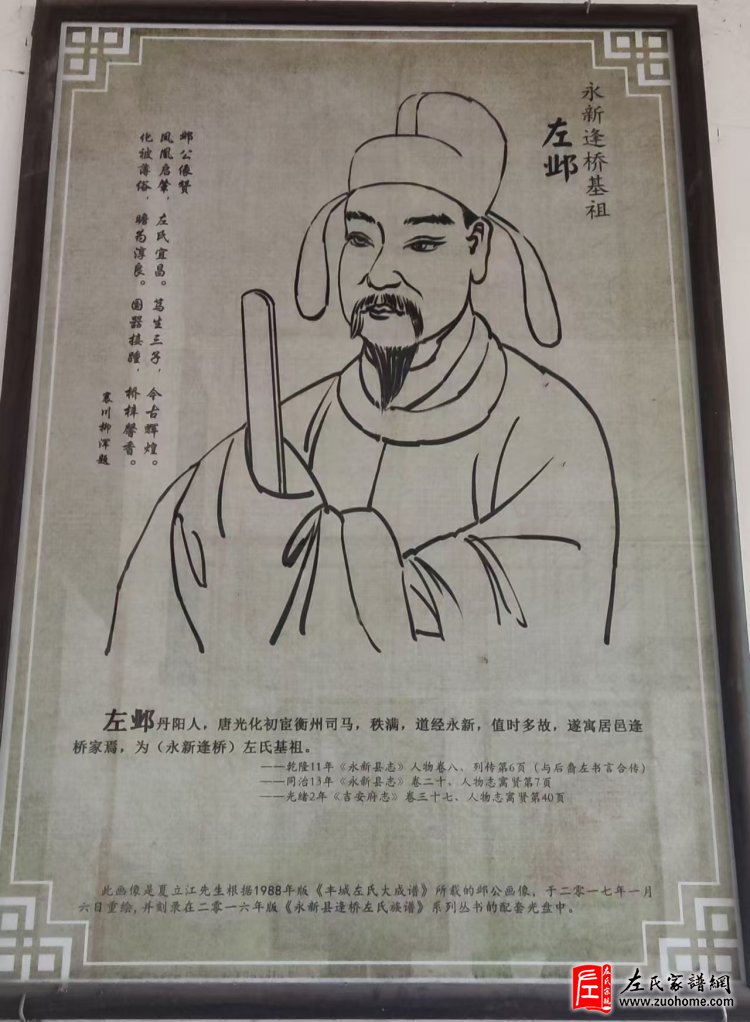 永新逢桥基祖
左邺
邺公像赞
凤凰启肇，左氏宜昌。笃生三子，今古辉煌。
化被薄俗，瞻为淳良。国器接踵，桥梓馨香。
寒川柳浑题
左邺丹阳人，唐光化初宦衡州司马，秩满，道经永新，值时多故，遂寓居邑逢
桥家焉，为（永新逢桥）左氏基祖。
——乾隆11年《永新县志》人物卷八、列传第6页（与后裔左书言合传）
——同治13年《永新县志》卷二十、人物志寓贤第7页
——光绪2年《吉安府志》卷三十七、人物志寓贤第40页
此画像是夏立江先生根据1988年版《丰城左氏大成谱》所载的邺公画像，于二零一七年一月
六日重绘,并刻录在二零一六年版《永新县逢桥左氏族谱》系列丛书的配套光盘中。
左氏家谱
左氏家譜網
www.zuohome.com